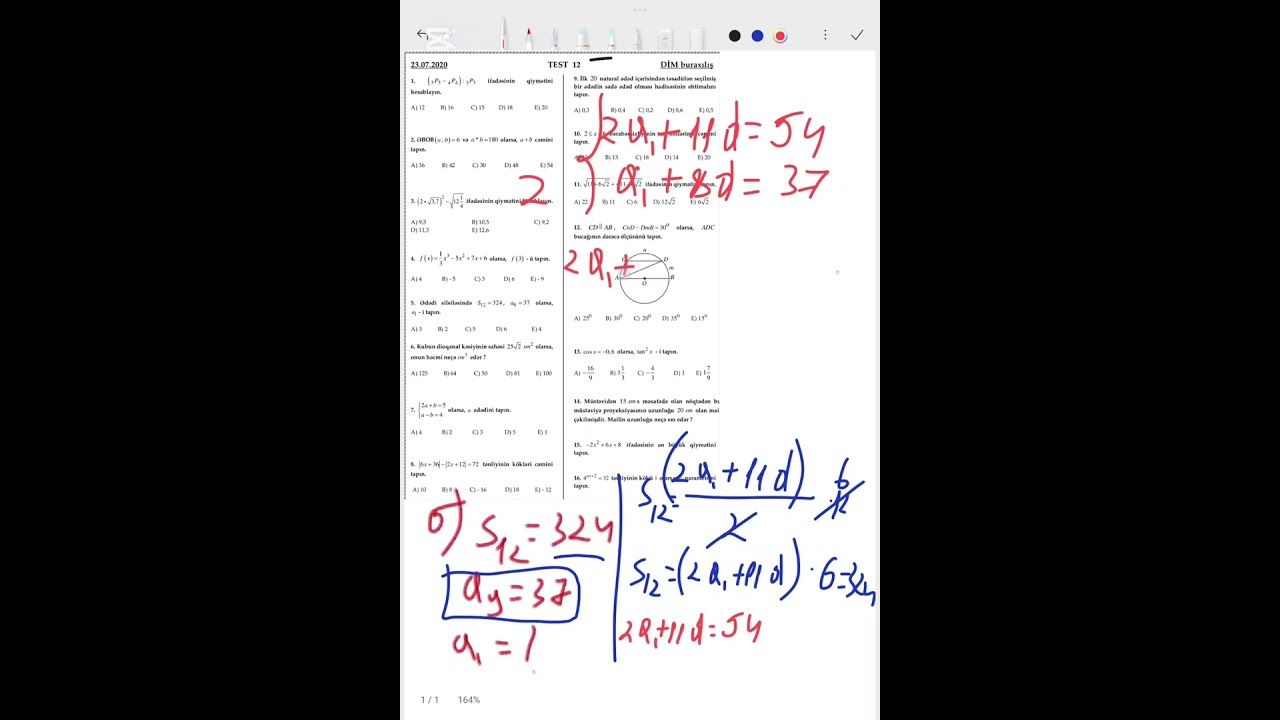 23.07.2020 TEST 12 DİM buraxılış
1. (5P5 − 4P4) : 3P3 ifadəsinin qiymətini
hesablayın.
A) 12 B) 16 C) 15 D) 18 E) 20
2. ƏBOB(a; b) = 6 və a * b = 180 olarsa, a + b cəmini
tapın.
A) 36 B) 42 C) 30 D) 48 E) 54
ifadəsinin qiymətini
A) 9,5 B) 10,5 C) 9,2
D) 11,3 E) 12,6
4. f(x) = 1/3 x³ − 5x² + 7x + 6 olarsa, f(3) - ü tapın.
A) 4 B) - 5 C) 3 D) 6 E) - 9
5. Ədədi silsiləsində S12 = 324, a9 = 37 olarsa,
a1 - i tapın.
A) 3 B) 2 C) 5 D) 6 E) 4
6. Kubun dioqanal kəsiyinin sahəsi 25√2 sm² olarsa,
onun həcmi neçə sm³ edər ?
A) 125 B) 64 C) 50 D) 81 E) 100
7. { 2a + b = 5
a − b = 4 olarsa, a ədədini tapın.
A) 4 B) 2 C) 3 D) 5 E) 1
8. |6x + 36| − |2x + 12| = 72 tənliyinin kökləri cəmini
tapın.
A) 10 B) 8 C) - 16 D) 18 E) - 12
9. İlk 20 natural ədəd içərisindən təsadüfən seçilmiş
bir ədədin sadə ədəd olması hadisəsinin ehtimalını
tapın.
A) 0,3 B) 0,4 C) 0,2 D) 0,6 E) 0,5
10. 2 ≤ x
tapın.
B) 13 C) 18 D) 14 E) 20
11. ifadəsinin qiymətini tapın.
A) 22 B) 11 C) 6 D) 12√2 E) 6√2
12. CD || AB, CnD − DmB = 30⁰ olarsa, ADC
bucağının dərəcə ölçüsünü tapın.
n
D
m
A B
O
A) 25⁰ B) 30⁰ C) 20⁰ D) 35⁰ E) 15⁰
13. cos x = −0,6 olarsa, tan² x - i tapın.
A) −16/9 B) 1 1/3 C) −4/3 D) 1 E) 1 7/9
14. Müstəvidən 15 sm məsafədə olan nöqtədən bu
müstəviyə proyeksiyasının uzunluğu 20 sm olan mail
çəkilmişdir. Mailin uzunluğu neçə sm edər ?
15. −2x² + 6x + 8 ifadəsinin ən böyük qiymətini
tapın.
tapın.
2
2a1 + 11d = 54
a1 + 8d = 37
2a1 +
S12 = 324
a9 = 37
a1 =
S12 = (2a1 + 11d)/2 · 12 6
S12 = (2a1 + 11d) · 6 = 324
2a1 + 11d = 54
1 / 1 164%